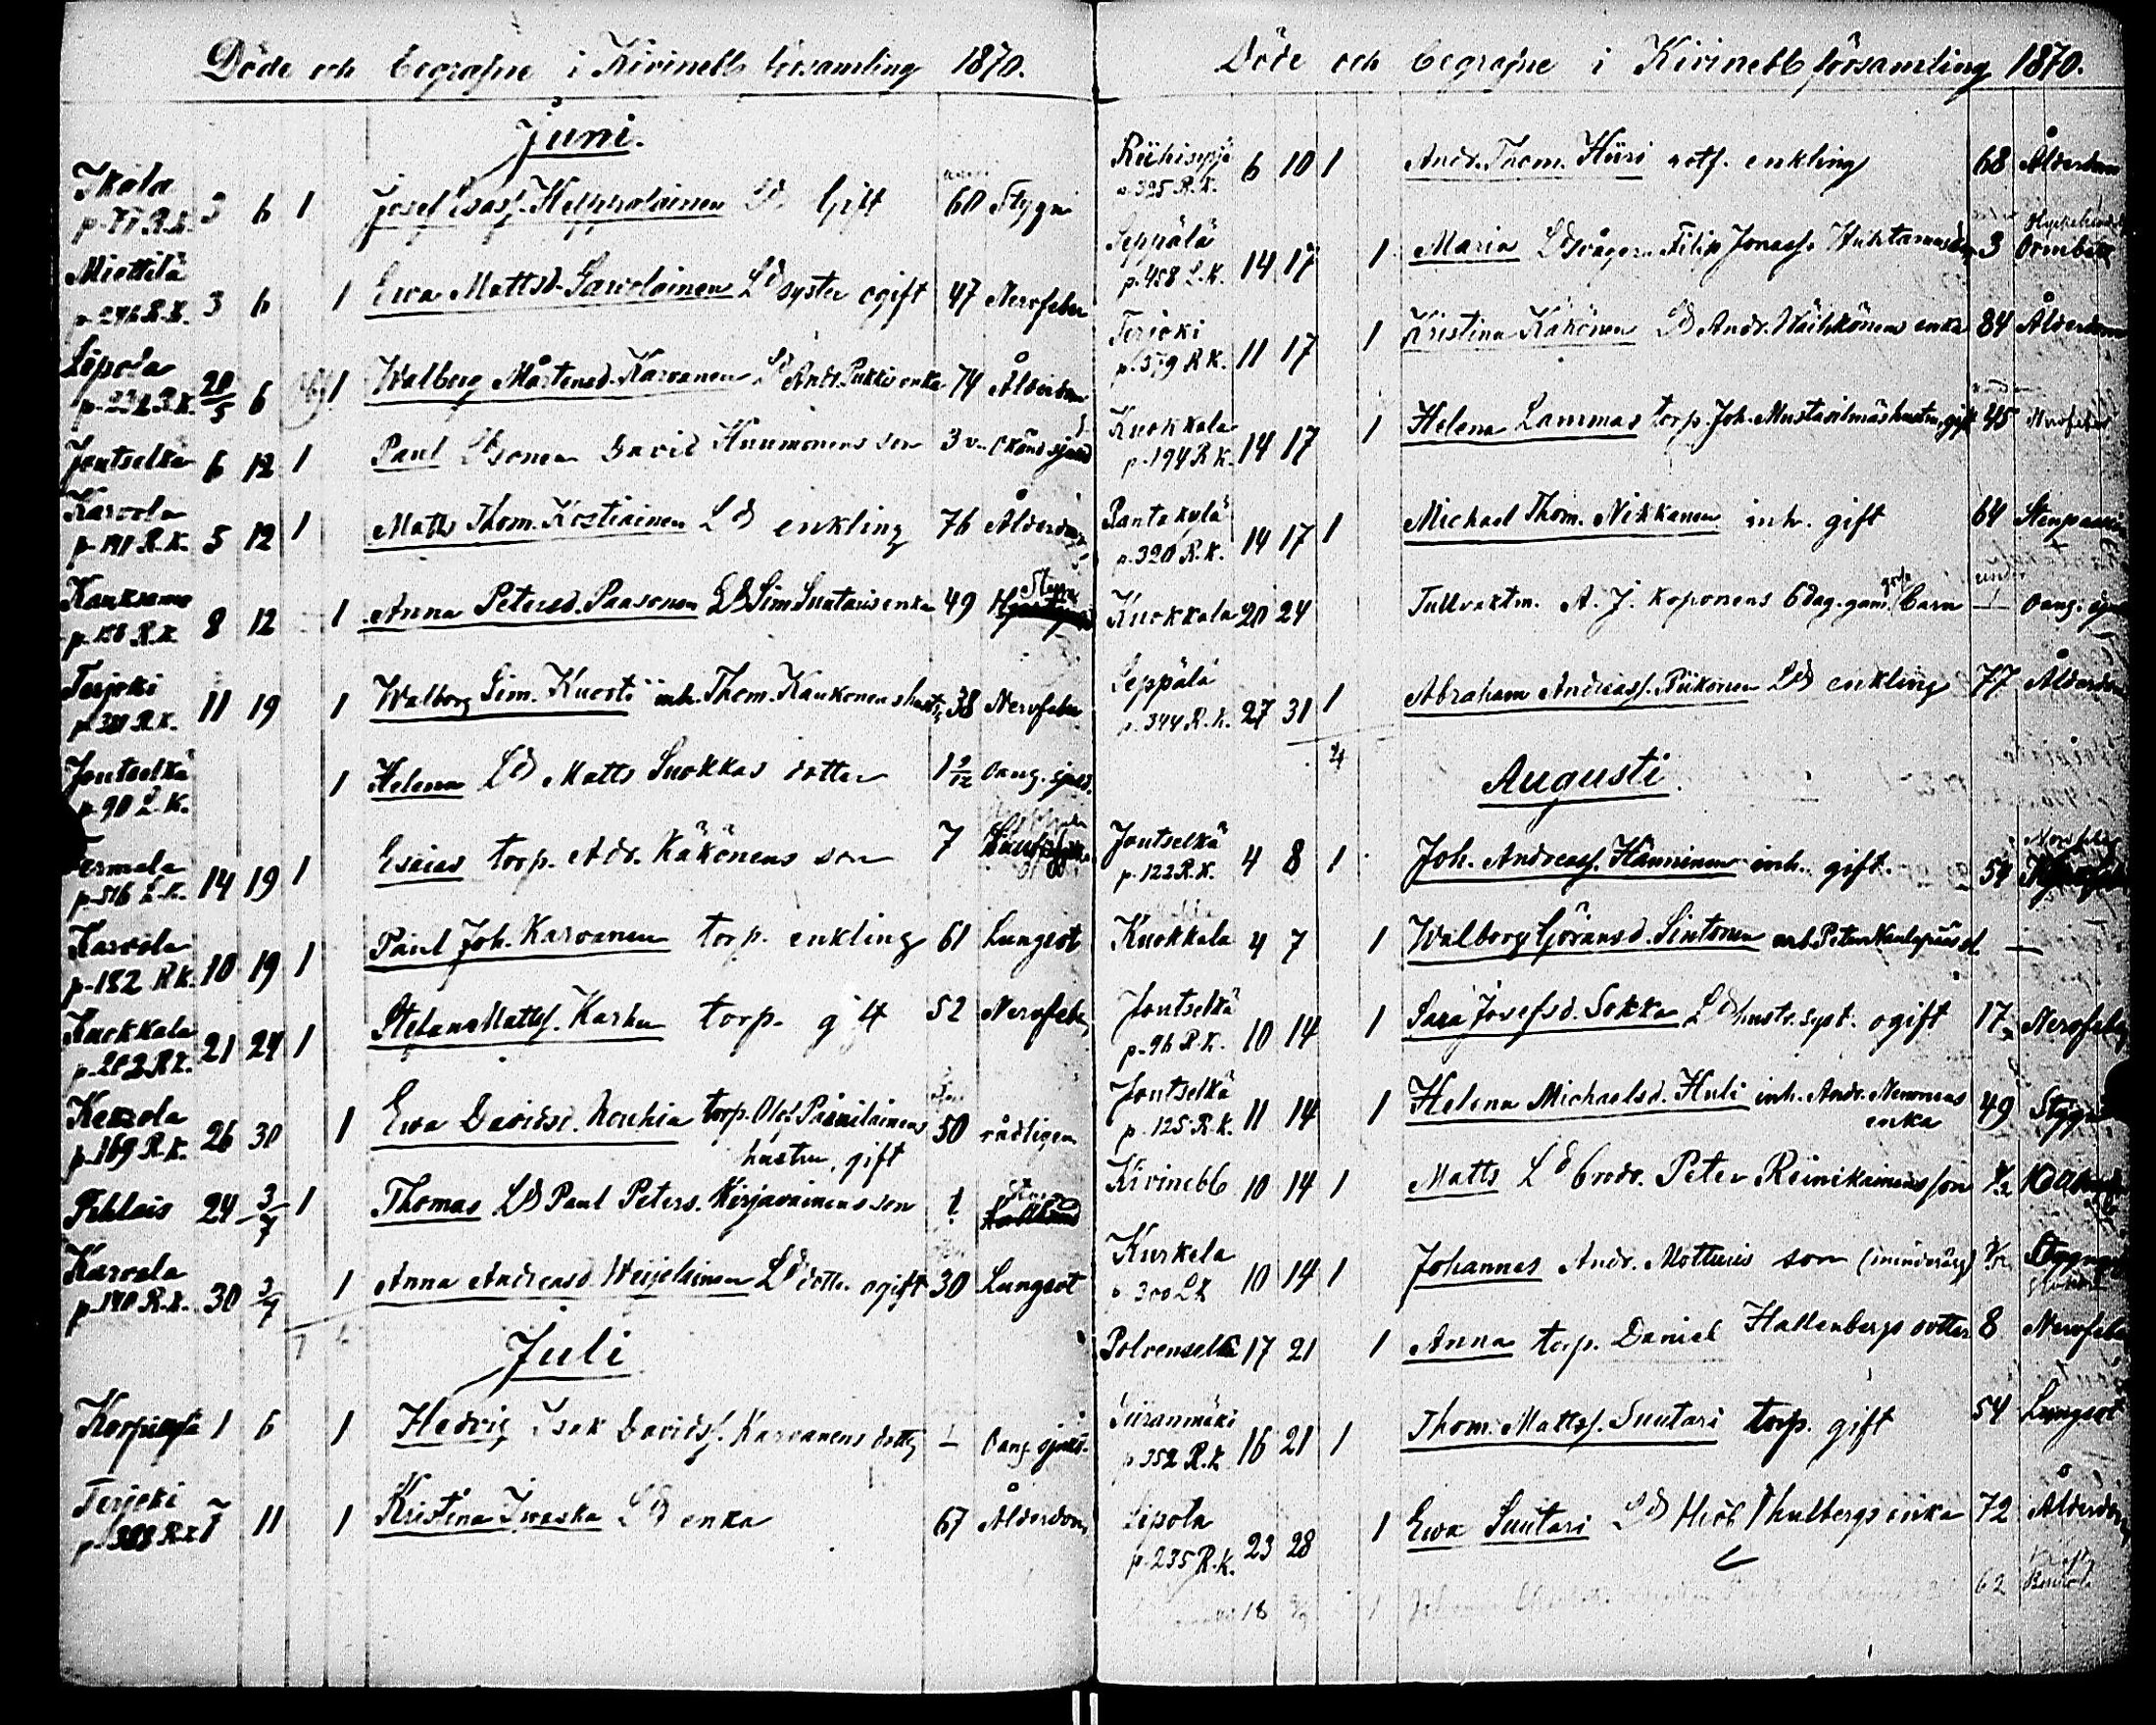 Döde och begrafne i Kivinebb församling 1870.
Juni.
Ikola p. 77 R.K. 3 6 1 Josef Esass. Helppolainen Ld Gift 60 Stygn
Miettilä p. 246 R.K. 3 6 1 Ewa Mattsd. Sawolainen Ld syster ogift 47 Nervfeber
Lipola p. 232 R.K. 28/5 6 1 Walborg Mårtensd. Karvanen Ld And. Pukkis enka 74 Ålderdom
Joutselkä 6 12 1 Paul Ldsonen David Huumonens son 3 v. okänd sjukd
Karvola p. 191 R.K. 5 12 1 Matts Thom. Kostiainen Ld enkling 76 Ålderdom
Kauksamo p. 158 R.K. 8 12 1 Anna Petersd. Paasonen Ld Sim Suutaris enka 49 Stygn
Terjoki p. 381 R.K. 11 19 1 Walborg Sim. Kuosti inh. Thom. Kaukonens hustr. 38 Nervfeber
Joutselkä p. 90 L.K. 1 Helena Ld Matts Suokkas dotter 1 9/12 oang. sjukd.
Termola p. 516 L.K. 14 19 1 Esaias torp. Adr. Käkönens son 7
Karvola p. 182 R.K. 10 19 1 Paul Joh. Karvanen torp. enkling 61 Lungsot
Kuokkala p. 202 R.K. 21 24 1 Stefan Mattss. Karhu torp. gift 52 Nervfeber
Kekrola p. 169 R.K. 26 30 1 Ewa Davidsd. Rouhia torp. Olof Päiviläinens 50 rådligen
hustru, gift
Pihlais 24 3/7 1 Thomas Ld Paul Peters. Kirjavainens son
Karvola p. 140 R.K. 30 3/7 1 Anna Andreasd. Weijolainen Ld dotter ogift 30 Lungsot
Juli
Korpioja 1 6 1 Hedvig Isak Davidss. Karvanens dotter — oang. sjukd.
Terjoki p. 388 R.K. 7 11 1 Kristina Iwaska Ld enka 67 Ålderdom
Döde och begrafne i Kivinebb församling 1870.
Riihisyrjä p. 325 R.K. 6 10 1 Andr. Thom. Hiiri rotf. enkling 68 Ålderdom
Seppälä p. 458 L.K. 14 17 1 Maria Ld svågern Filip Jonass. Huhtanens dotter 3 Ormbett
Terjoki p. 379 R.K. 11 17 1 Kristina Käkönen Ld Andr. Häihkönens enka 84 Ålderdom
Kuokkala p. 194 R.K. 14 17 1 Helena Lammas torp. Joh. Mustavilmäs hustru, gift 45 Nervfeber
Rantakylä p. 320 R.K. 14 17 1 Michael Thom. Nikkanen inh. gift 64 Stenpassion
Kuokkala 20 24 Tullvaktm. A. J. Koponens 6 dag. gam. barn — oang. sjukd
Seppälä p. 344 R.K. 27 31 1 Abraham Andreass. Riikonen Ld enkling 77 Ålderdom
4
Augusti.
Joutselkä p. 122 R.K. 4 8 1 Joh. Andreass. Hänninen inh. gift. 54 Nervfeber
Kuokkala 4 7 1 Walborg Göransd. Sintonen arb. Peter Kaulapääs d. —
Joutselkä p. 96 R.K. 10 14 1 Sara Josefsd. Sokka Ld hustr. syst. ogift 17 Nervfeber
Joutselkä p. 125 R.K. 11 14 1 Helena Michaelsd. Huli inh. Andr. Nenonens 49 Stygn
enka
Kivinebb 10 14 1 Matts Ld brodr. Peter Reinikainens son
Kurkela p. 300 L.K. 10 14 1 Johannes Andr. Mottueis son (minderårig) Stygn
Polvenselkä 17 21 1 Anna torp. Daniel Hallenbergs dotter 8 Nervfeber
Siiranmäki p. 352 R.K. 16 21 1 Thom. Mattss. Suutari torp. gift 54 Lungsot
Lipola p. 235 R.K. 23 28 1 Ewa Suutari Ld Hiob Thulbergs enka 72 Ålderdom
18 1 62